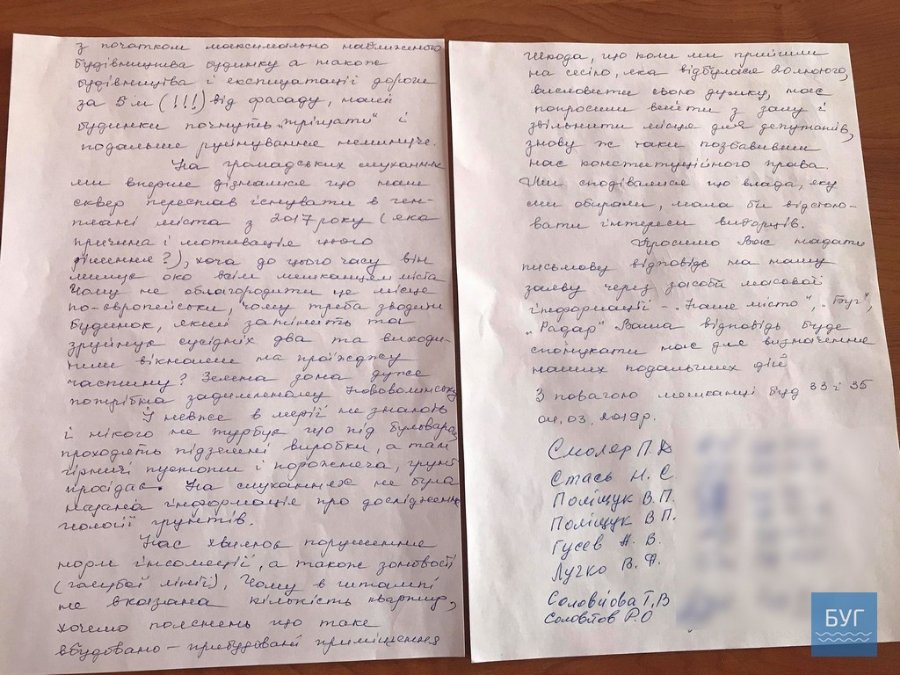 з початком максимально наближеного
будівництва будинку а також
будівництва і експлуатації дороги
за 5 м (!!!) від фасаду, наші
будинки почнуть „тріщати" і
подальше руйнування неминуче.
На громадських слуханнях
ми вперше дізналися що наш
сквер перестав існувати в ген-
плані міста з 2017 року (яка
причина і мотивація цього
рішення?), хоча до цього часу він
милує око всім мешканцям міста
Чому не облагородити це місце
по-європейськи, чому треба зводити
будинок, який затінить та
зруйнує сусідніх два та виходи-
тиме вікнами на проїжджу
частину? Зелена зона дуже
потрібна задимленому Нововолинську
І невже в мерії не знають
і нікого не турбує що під бульваром
проходять підземні виробки, а там
гірничі пустоти і порожнеча, грунт
просідає. На слуханнях не була
надана інформація про дослідження
геології грунтів.
Нас хвилює порушення
норм інсоляції, а також зоновості
(голубої лінії). Чому в штампі
не вказана кількість квартир,
хочемо пояснень що таке
вбудовано-прибудовані приміщення
Шкода, що коли ми прийшли
на сесію, яка відбулася 20 лютого,
висловити свою думку, нас
попросили вийти з залу і
звільнити місця для депутатів,
знову ж таки позбавивши
нас конституційного права.
Ми сподівалися що влада, яку
ми обирали, мала би відстою-
вати інтереси виборців.
Просимо Вас надати
письмову відповідь на нашу
заяву через засоби масової
інформації - „Наше місто", „Буг",
„Радар" Ваша відповідь буде
спонукати нас для визначення
наших подальших дій
З повагою мешканці буд 33 і 35
04.03.2019р.
Смоляр П.
Стась Н. С.
Поліщук В.П.
Поліщук В.П.
Гусев А. В.
Лучко В. Ф.
Соловйова Т.В
Соловйов Р.О
БУГ